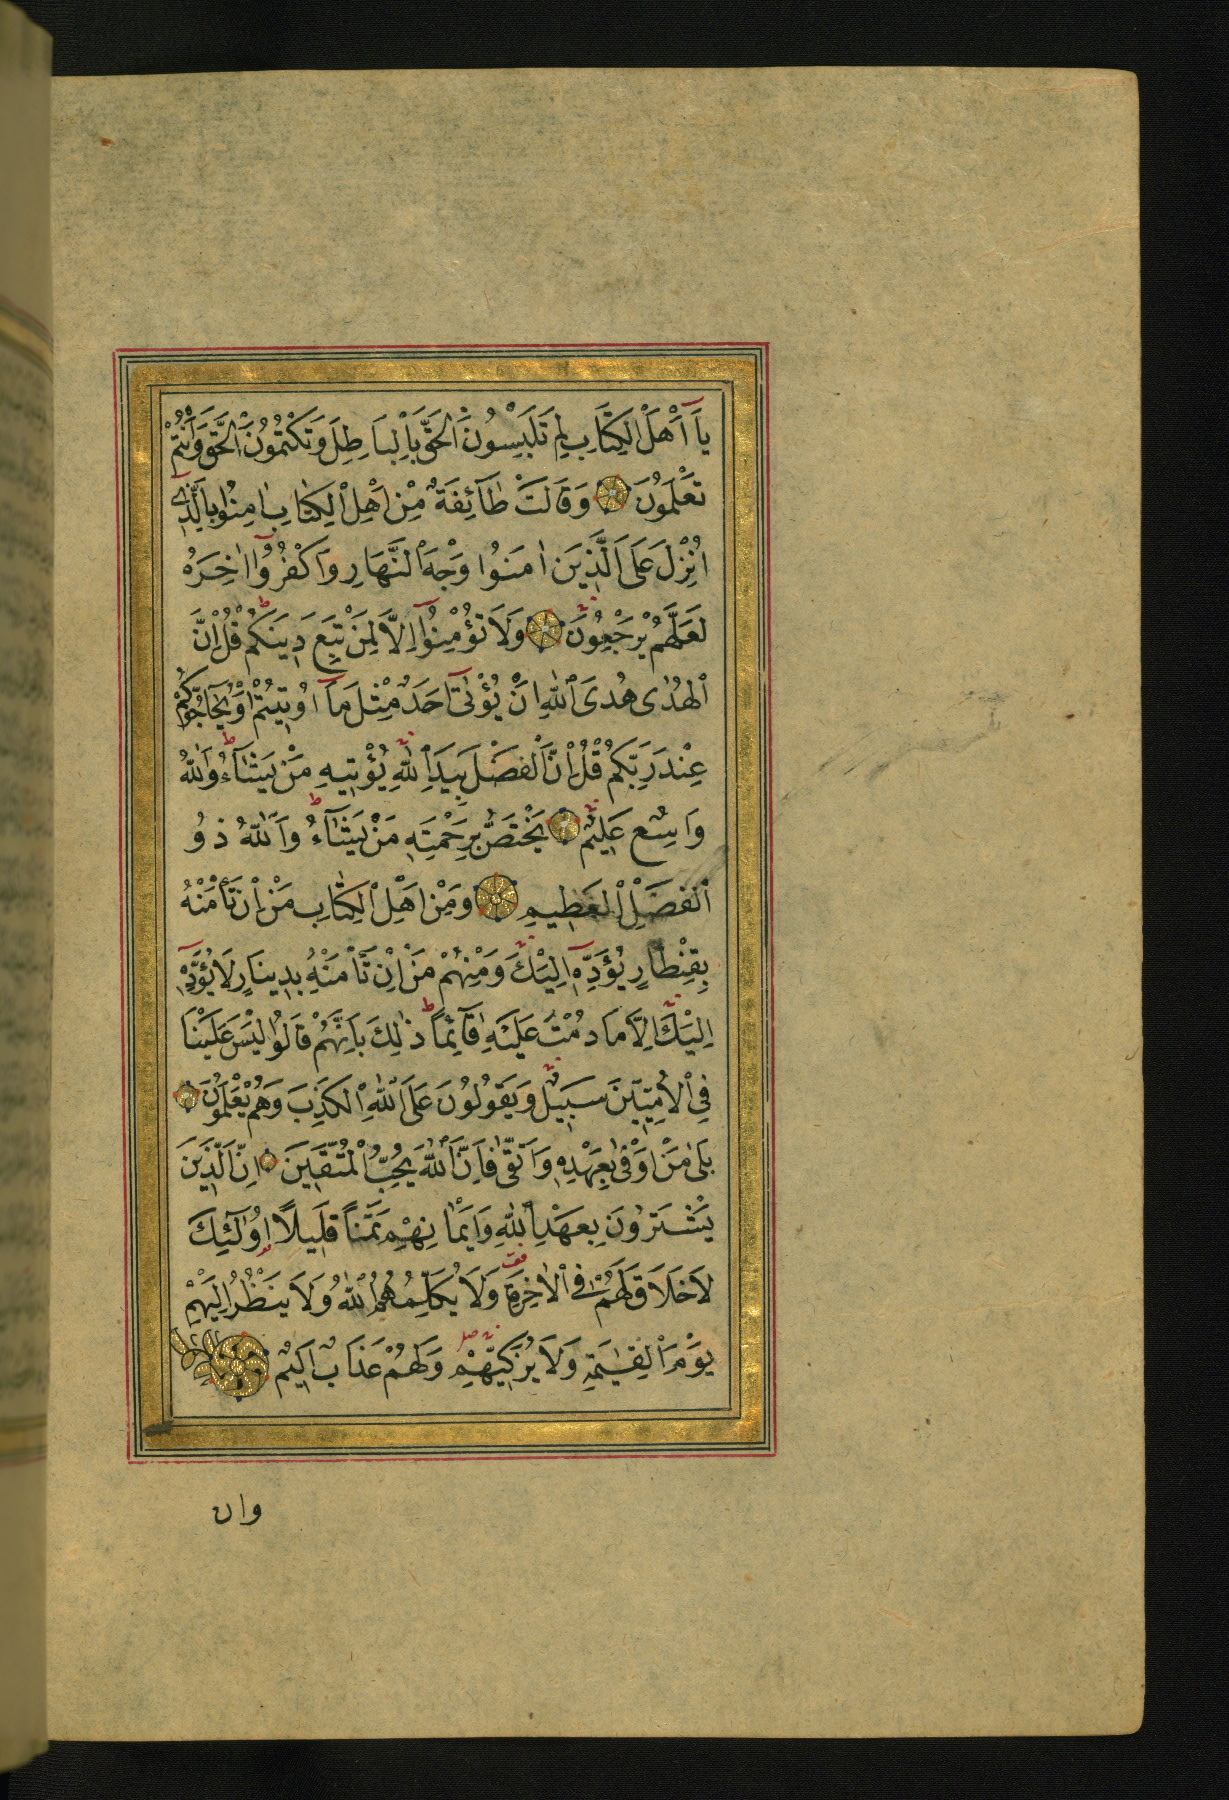 يَآ اَهْلَ الْكِتَابِ لِمَ تَلْبِسُونَ الْحَقَّ بِالْبَاطِلِ وَتَكْتُمُونَ الْحَقَّ وَاَنْتُمْ
تَعْلَمُونَ وَقَالَتْ طَآئِفَةٌ مِنْ اَهْلِ الْكِتَابِ اٰمِنُوا بِالَّذِٓى
اُنْزِلَ عَلَى الَّذِينَ اٰمَنُوا وَجْهَ النَّهَارِ وَاكْفُرُوٓا اٰخِرَهُ
لَعَلَّهُمْ يَرْجِعُونَ وَلَا تُؤْمِنُوٓا اِلَّا لِمَنْ تَبِعَ دِينَكُمْ قُلْ اِنَّ
الْهُدٰى هُدَى اللّٰهِ اَنْ يُؤْتٰىٓ اَحَدٌ مِثْلَ مَآ اُوتِيتُمْ اَوْ يُحَآجُّوكُمْ
عِنْدَ رَبِّكُمْ قُلْ اِنَّ الْفَضْلَ بِيَدِ اللّٰهِ يُؤْتِيهِ مَنْ يَشَآءُ وَاللّٰهُ
وَاسِعٌ عَلِيمٌ يَخْتَصُّ بِرَحْمَتِهِ مَنْ يَشَآءُ وَاللّٰهُ ذُو
الْفَضْلِ الْعَظِيمِ وَمِنْ اَهْلِ الْكِتَابِ مَنْ اِنْ تَأْمَنْهُ
بِقِنْطَارٍ يُؤَدِّهِٓ اِلَيْكَ وَمِنْهُمْ مَنْ اِنْ تَأْمَنْهُ بِدِينَارٍ لَا يُؤَدِّهِٓ
اِلَيْكَ اِلَّا مَا دُمْتَ عَلَيْهِ قَآئِمًا ذٰلِكَ بِاَنَّهُمْ قَالُوا لَيْسَ عَلَيْنَا
فِى الْاُمِّيِّينَ سَبِيلٌ وَيَقُولُونَ عَلَى اللّٰهِ الْكَذِبَ وَهُمْ يَعْلَمُونَ
بَلٰى مَنْ اَوْفٰى بِعَهْدِهِ وَاتَّقٰى فَاِنَّ اللّٰهَ يُحِبُّ الْمُتَّقِينَ اِنَّ الَّذِينَ
يَشْتَرُونَ بِعَهْدِ اللّٰهِ وَاَيْمَانِهِمْ ثَمَنًا قَلِيلًا اُولٰٓئِكَ
لَا خَلَاقَ لَهُمْ فِى الْاٰخِرَةِ وَلَا يُكَلِّمُهُمُ اللّٰهُ وَلَا يَنْظُرُ اِلَيْهِمْ
يَوْمَ الْقِيٰمَةِ وَلَا يُزَكِّيهِمْ وَلَهُمْ عَذَابٌ اَلِيمٌ
وان